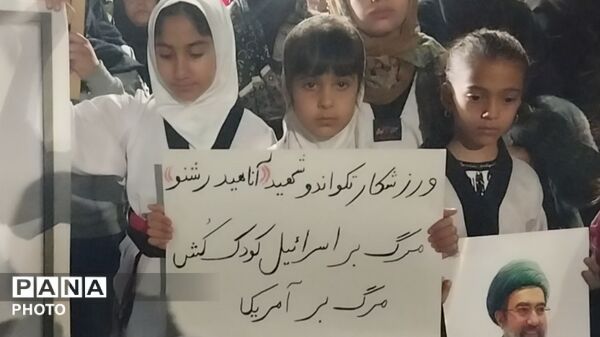 ورزشکار تکواندو شهید «آناهید رشنو»
مرگ بر اسرائیل کودک کُش
مرگ بر آمریکا
PANA
PHOTO